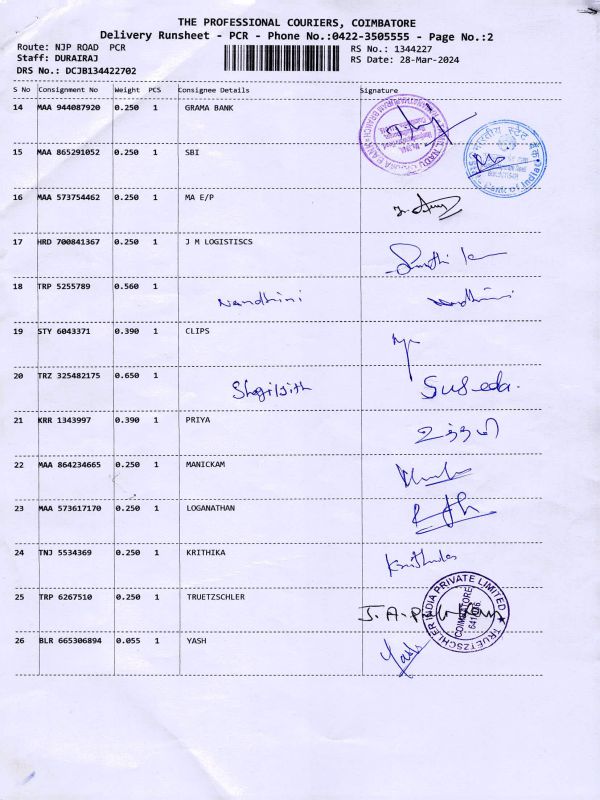 THE PROFESSIONAL COURIERS, COIMBATORE
Delivery Runsheet - PCR - Phone No.:0422-3505555 - Page No.:2
Route: NJP ROAD PCR RS No.: 1344227
Staff: DURAIRAJ RS Date: 28-Mar-2024
DRS No.: DCJB134422702
S No Consignment No Weight PCS Consignee Details Signature
14 MAA 944087920 0.250 1 GRAMA BANK
15 MAA 865291052 0.250 1 SBI
भारतीय स्टेट बैंक
Bank of India
16 MAA 573754462 0.250 1 MA E/P
17 HRD 700841367 0.250 1 J M LOGISTISCS
18 TRP 5255789 0.560 1 Nandhini Nandhini
19 STY 6043371 0.390 1 CLIPS
20 TRZ 325482175 0.650 1
21 KRR 1343997 0.390 1 PRIYA
22 MAA 864234665 0.250 1 MANICKAM
23 MAA 573617170 0.250 1 LOGANATHAN
24 TNJ 5534369 0.250 1 KRITHIKA Krithika
25 TRP 6267510 0.250 1 TRUETZSCHLER
TRUETZSCHLER INDIA PRIVATE LIMITED
COIMBATORE
26 BLR 665306894 0.055 1 YASH Yash